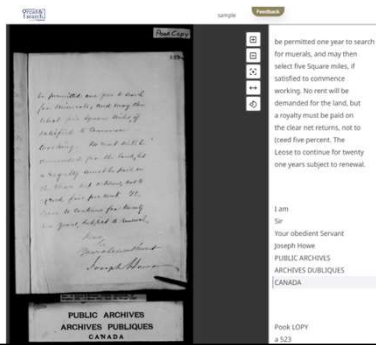 sample
Feedback
Poor Copy
be permitted one year to search
for minerals, and may then
select five Square miles, if
satisfied to commence
working. No rent will be
demanded for the land, but
a royalty must be paid on
the clear net returns, not to
exceed five per cent. The
Lease to continue for twenty
one years, subject to renewal.
I am
Sir
Your obedient Servant
Joseph Howe
PUBLIC ARCHIVES
ARCHIVES PUBLIQUES
CANADA
be permitted one year to search
for muerals, and may then
select five Square miles, if
satisfied to commence
working. No rent will be
demanded for the land, but
a royalty must be paid on
the clear net returns, not to
(ceed five percent. The
Leose to continue for twenty
one years subject to renewal.
I am
Sir
Your obedient Servant
Joseph Howe
PUBLIC ARCHIVES
ARCHIVES DUBLIQUES
CANADA
Pook LOPY
a 523